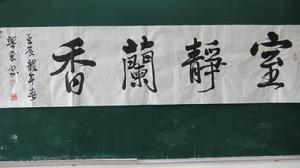 室靜蘭香
壬辰龍年春